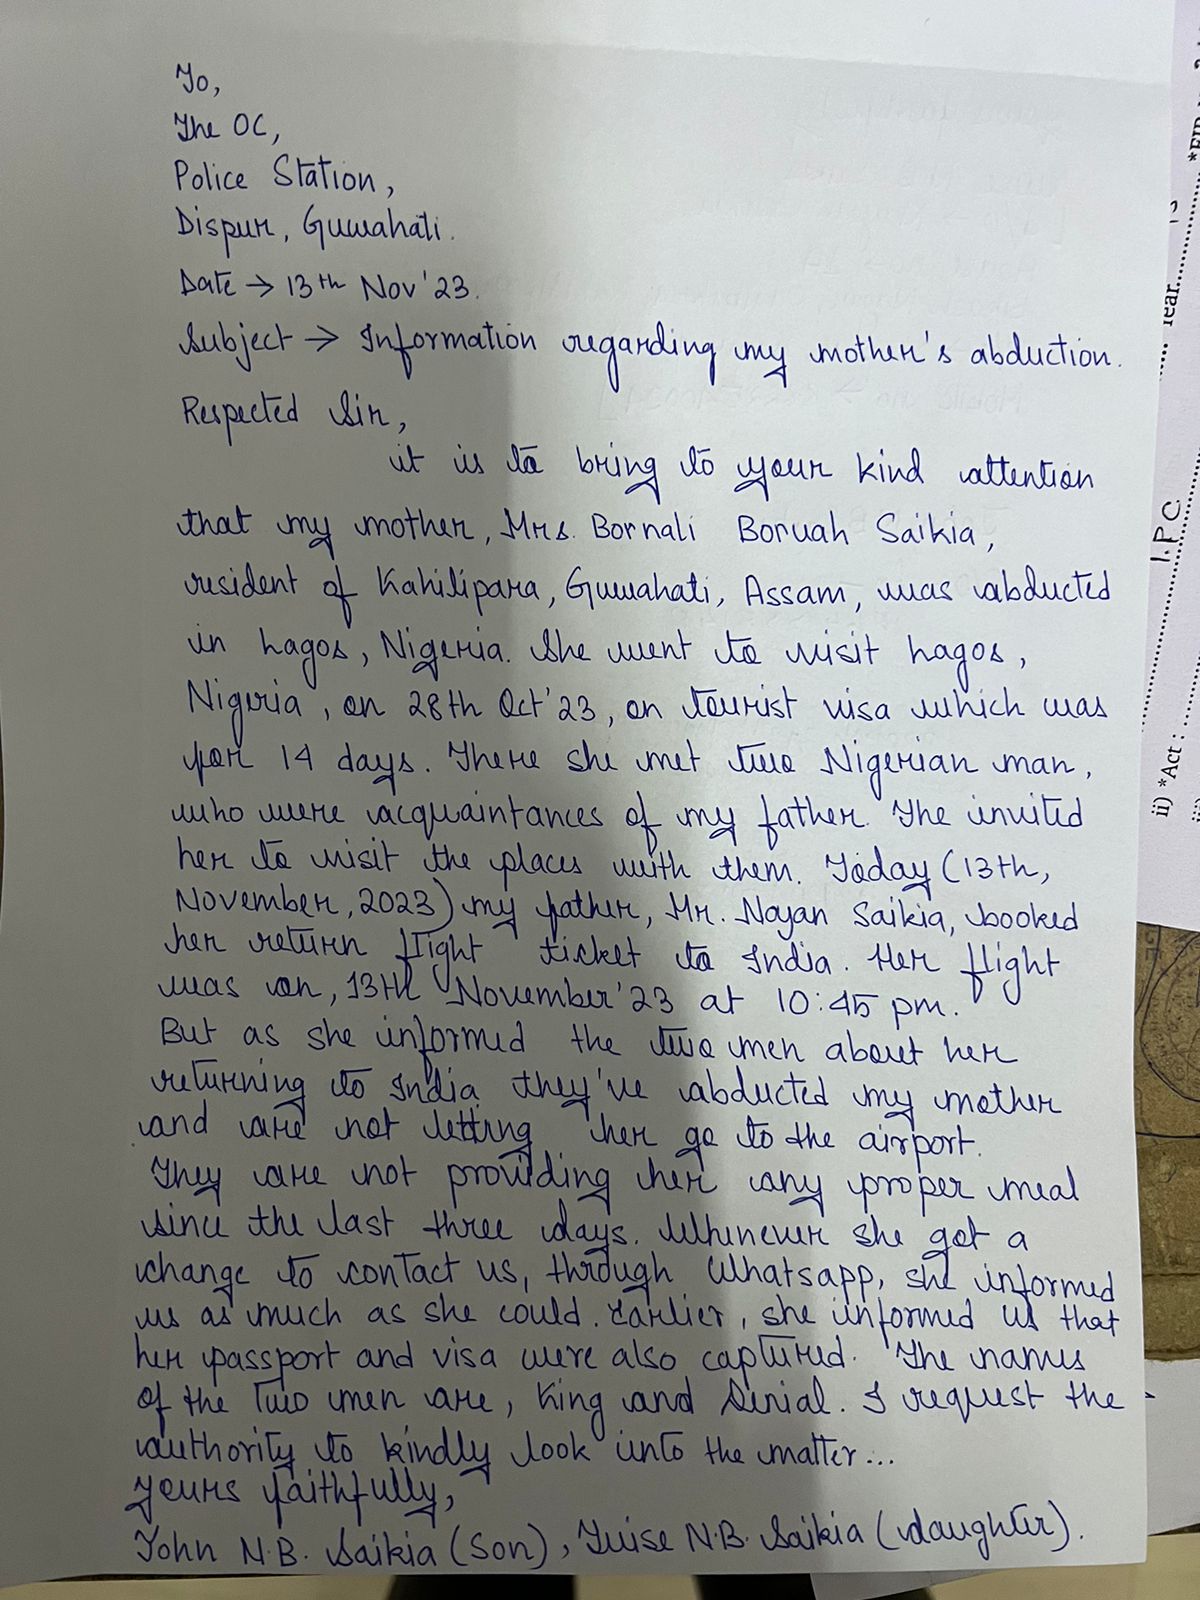 To,
The OC,
Police Station,
Dispur, Guwahati.
Date → 13th Nov'23.
Subject → Information regarding my mother's abduction.
Respected Sir,
it is to bring to your kind attention
that my mother, Mrs. Bornali Boruah Saikia,
resident of Kahilipara, Guwahati, Assam, was abducted
in Lagos, Nigeria. She went to visit Lagos,
Nigeria, on 28th Oct'23, on tourist visa which was
for 14 days. There she met two Nigerian man,
who were acquaintances of my father. The invited
her to visit the places with them. Today (13th,
November, 2023) my father, Mr. Nayan Saikia, booked
her return flight ticket to India. Her flight
was on, 13th November'23 at 10:45 pm.
But as she informed the two men about her
returning to India they've abducted my mother
and are not letting her go to the airport.
They are not providing her any proper meal
since the last three days. Whenever she got a
change to contact us, through Whatsapp, she informed
us as much as she could. Earlier, she informed us that
her passport and visa were also captured. The names
of the two men are, King and Denial. I request the
authority to kindly look into the matter...
Yours faithfully,
John N.B. Saikia (son), N.B. Saikia (daughter).
ii) *Act :
I.P.C
Year